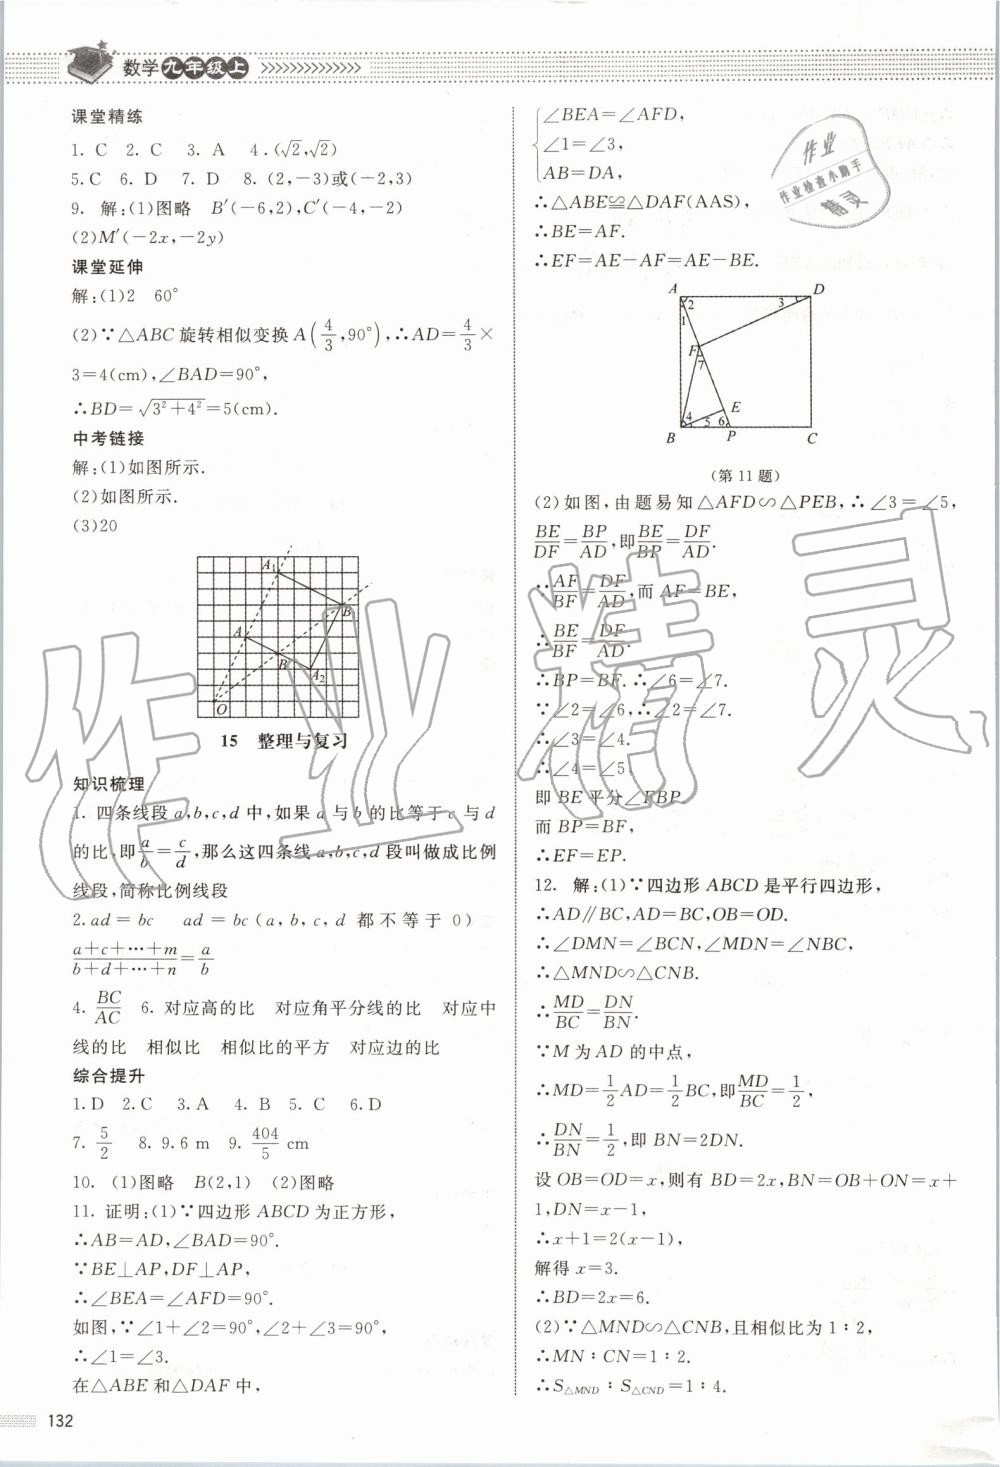 数学九年级上
课堂精练
1. C 2. C 3. A 4.(√2,√2)
5.C 6. D 7. D 8. (2,-3)或(-2,3)
9. 解:(1)图略 B′(-6,2),C′(-4,-2)
(2)M′(-2x,-2y)
课堂延伸
解:(1)2 60°
(2)∵△ABC旋转相似变换A(4/3,90°),∴AD=4/3×
3=4(cm),∠BAD=90°,
∴BD=√(3²+4²)=5(cm).
中考链接
解:(1)如图所示.
(2)如图所示.
(3)20
A₁
B₁
A
B
A₂
O
15 整理与复习
知识梳理
1. 四条线段a,b,c,d中,如果a与b的比等于c与d
的比,即a/b=c/d,那么这四条线a,b,c,d段叫做成比例
线段,简称比例线段
2.ad=bc ad=bc(a,b,c,d都不等于0)
(a+c+…+m)/(b+d+…+n)=a/b
4. BC/AC 6. 对应高的比 对应角平分线的比 对应中
线的比 相似比 相似比的平方 对应边的比
综合提升
1.D 2.C 3.A 4.B 5.C 6.D
7. 5/2 8. 9.6 m 9. 404/5 cm
10. (1)图略 B(2,1) (2)图略
11. 证明:(1)∵四边形ABCD为正方形,
∴AB=AD,∠BAD=90°.
∵BE⊥AP,DF⊥AP,
∴∠BEA=∠AFD=90°.
如图,∵∠1+∠2=90°,∠2+∠3=90°,
∴∠1=∠3.
在△ABE和△DAF中,
132
∠BEA=∠AFD,
∠1=∠3,
AB=DA,
∴△ABE≌△DAF(AAS),
∴BE=AF.
∴EF=AE-AF=AE-BE.
作业
作业检查小助手
精灵
A 2 3 D
1
F
7
4 5 6 E
B P C
(第11题)
(2)如图,由题易知△AFD∽△PEB,∴∠3=∠5,
BE/DF=BP/AD,即BE/BP=DF/AD.
∵AF/BF=DF/AD,而AF=BE,
∴BE/BF=DF/AD.
∴BP=BF.∴∠6=∠7.
∵∠2=∠6,∴∠2=∠7.
∴∠3=∠4.
∴∠4=∠5.
即BE平分∠FBP.
而BP=BF,
∴EF=EP.
12. 解:(1)∵四边形ABCD是平行四边形,
∴AD∥BC,AD=BC,OB=OD.
∴∠DMN=∠BCN,∠MDN=∠NBC,
∴△MND∽△CNB.
∴MD/BC=DN/BN.
∵M为AD的中点,
∴MD=1/2AD=1/2BC,即MD/BC=1/2,
∴DN/BN=1/2,即BN=2DN.
设OB=OD=x,则有BD=2x,BN=OB+ON=x+
1,DN=x-1,
∴x+1=2(x-1),
解得x=3.
∴BD=2x=6.
(2)∵△MND∽△CNB,且相似比为1∶2,
∴MN∶CN=1∶2.
∴S△MND∶S△CND=1∶4.
作业精灵